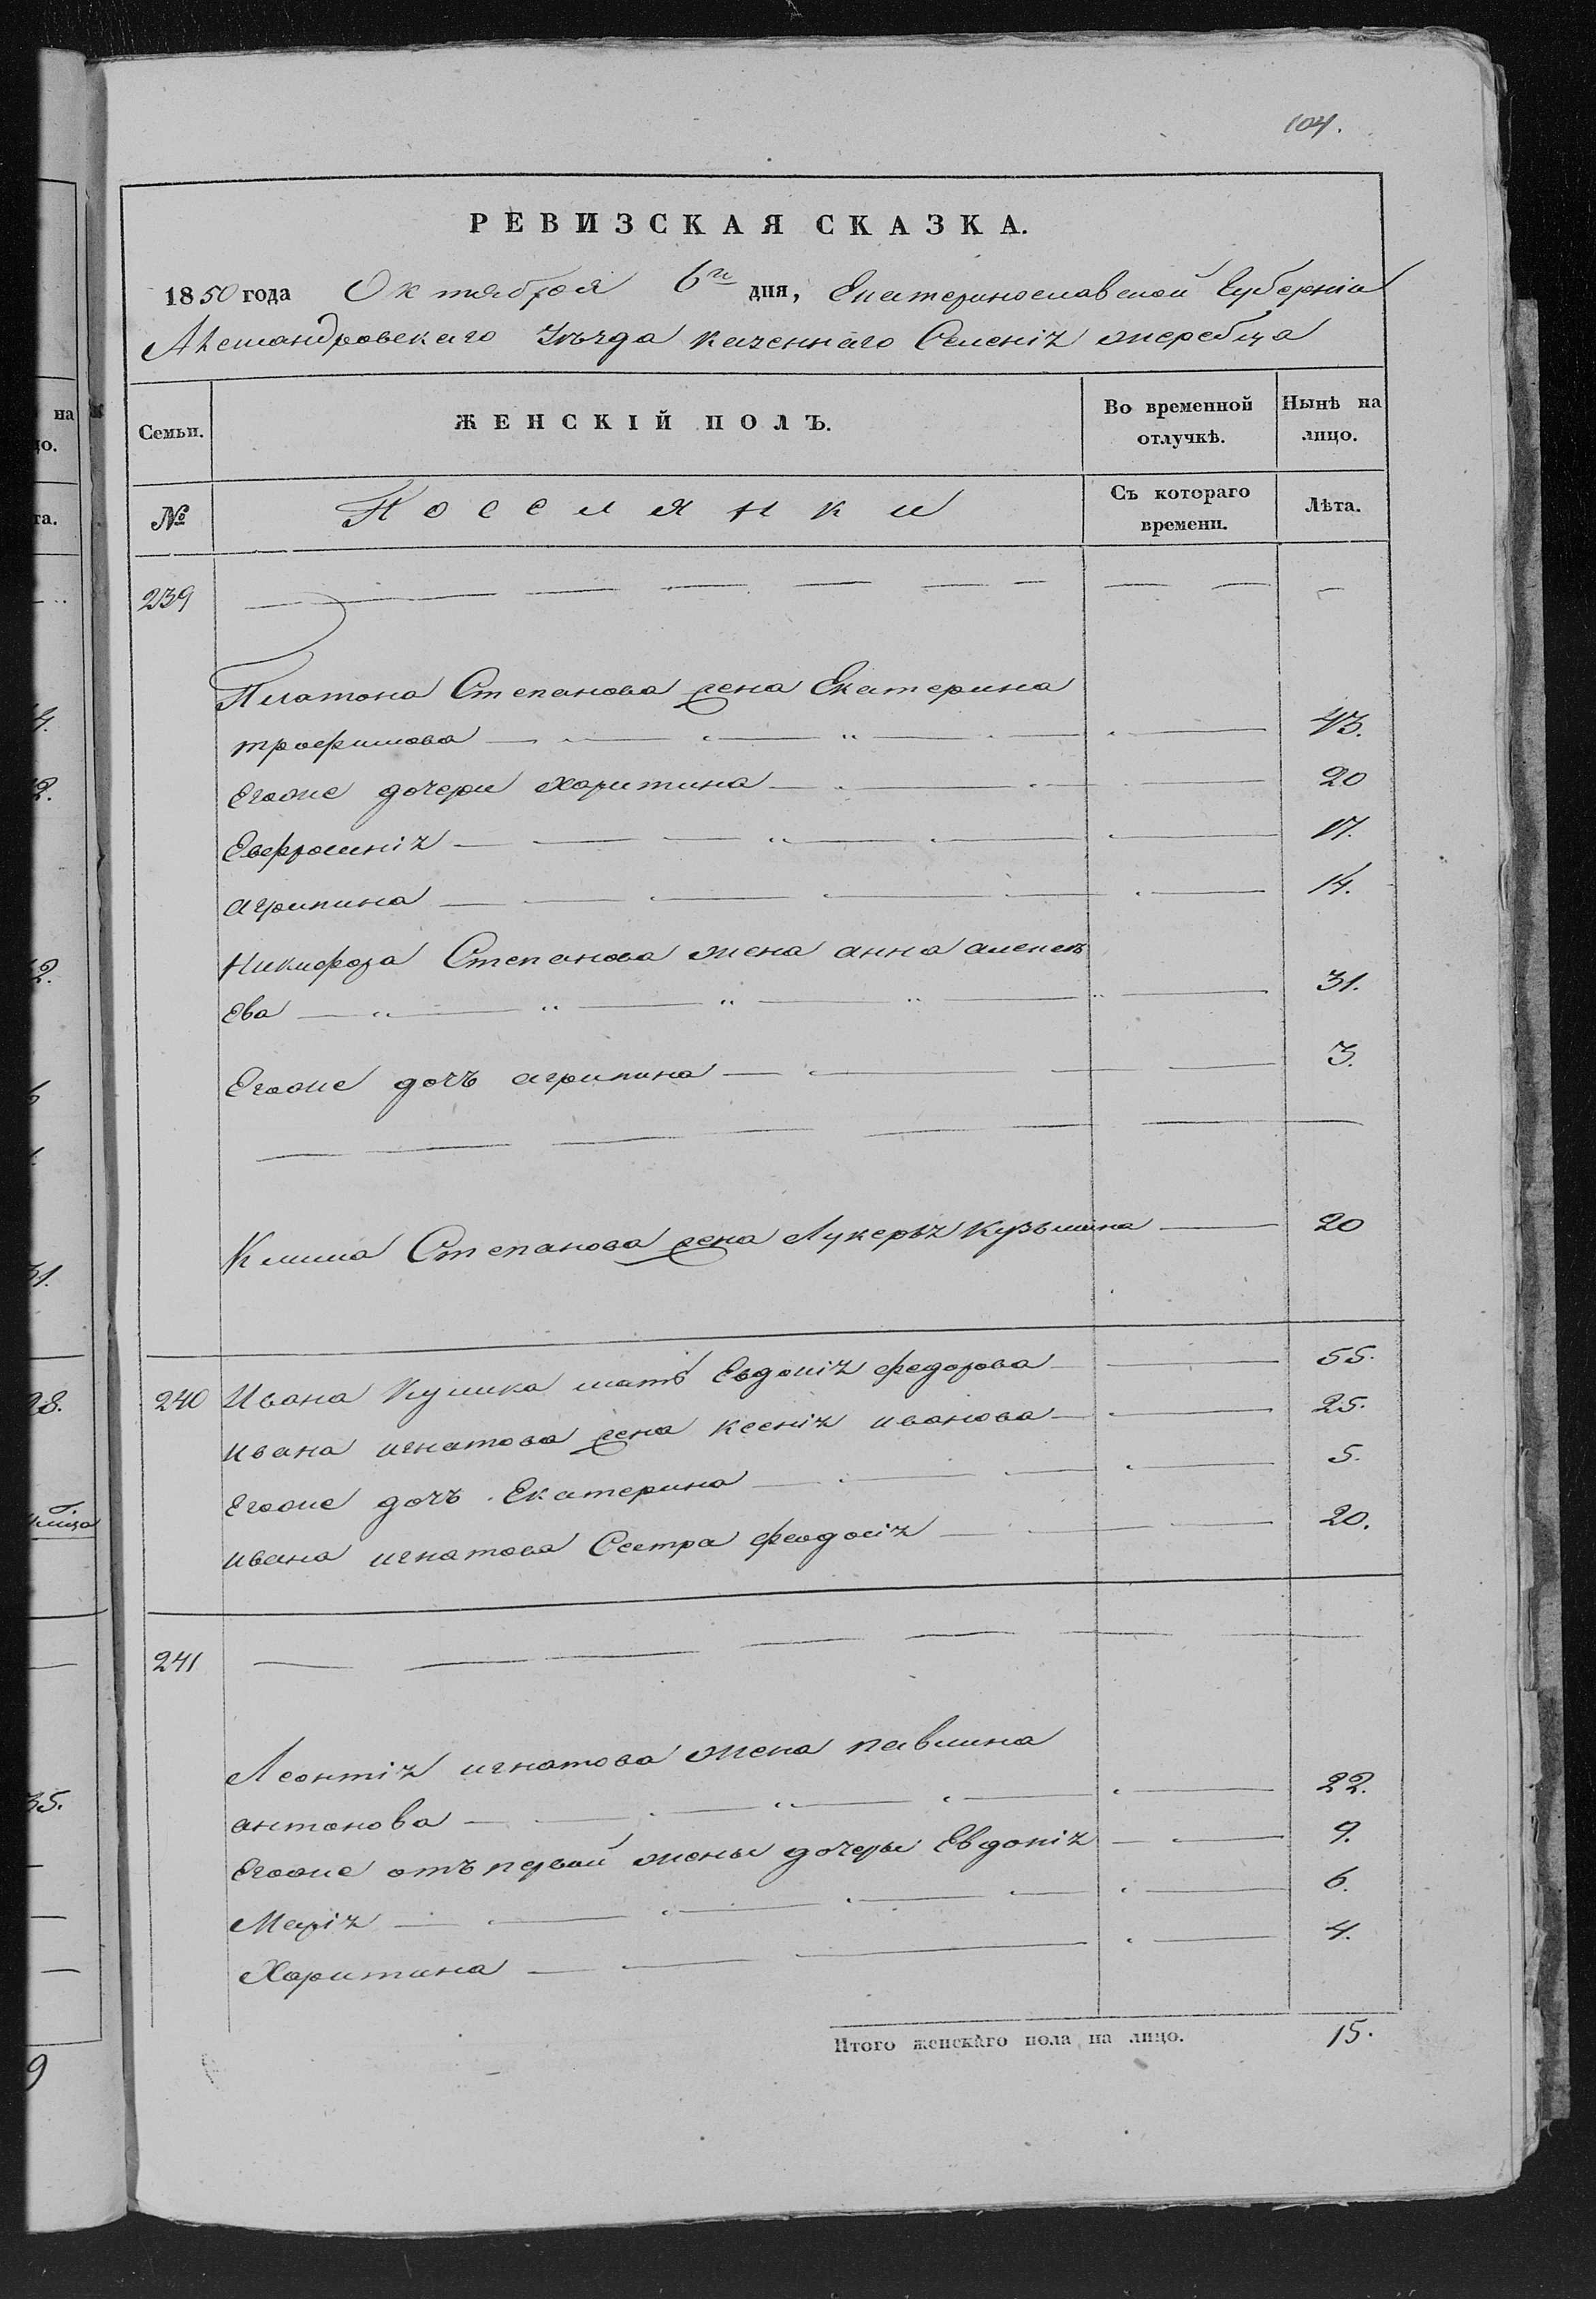 104.
РЕВИЗСКАЯ СКАЗКА.
1850 года Октября 6го дня, Екатеринославской Губерніи
Александровскаго Уѣзда казеннаго Селенія жеребца
Семьи. ЖЕНСКІЙ ПОЛЪ. Во временной отлучкѣ. Нынѣ на лицо.
№ Поселянки Съ котораго времени. Лѣта.
239
Платона Степанова жена Екатерина
трофимова 43.
Егоже дочери харитина 20
Евфросинія 17.
агрипина 14.
Никифора Степанова жена анна алексѣ
ева 31.
Егоже дочь агрипина 3.
Клима Степанова жена Лукерья Кузьмина 20
240 Ивана Кулика мать Евдокія федорова 55.
ивана игнатова жена ксенія иванова 25.
Егоже дочь Екатерина 5.
ивана игнатова Сестра феодосія 20.
241
Леонтія игнатова жена павлина
антонова 22.
Егоже отъ первой жены дочери Евдокія 9.
Марія 6.
Харитина 4.
Итого женскаго пола на лицо. 15.